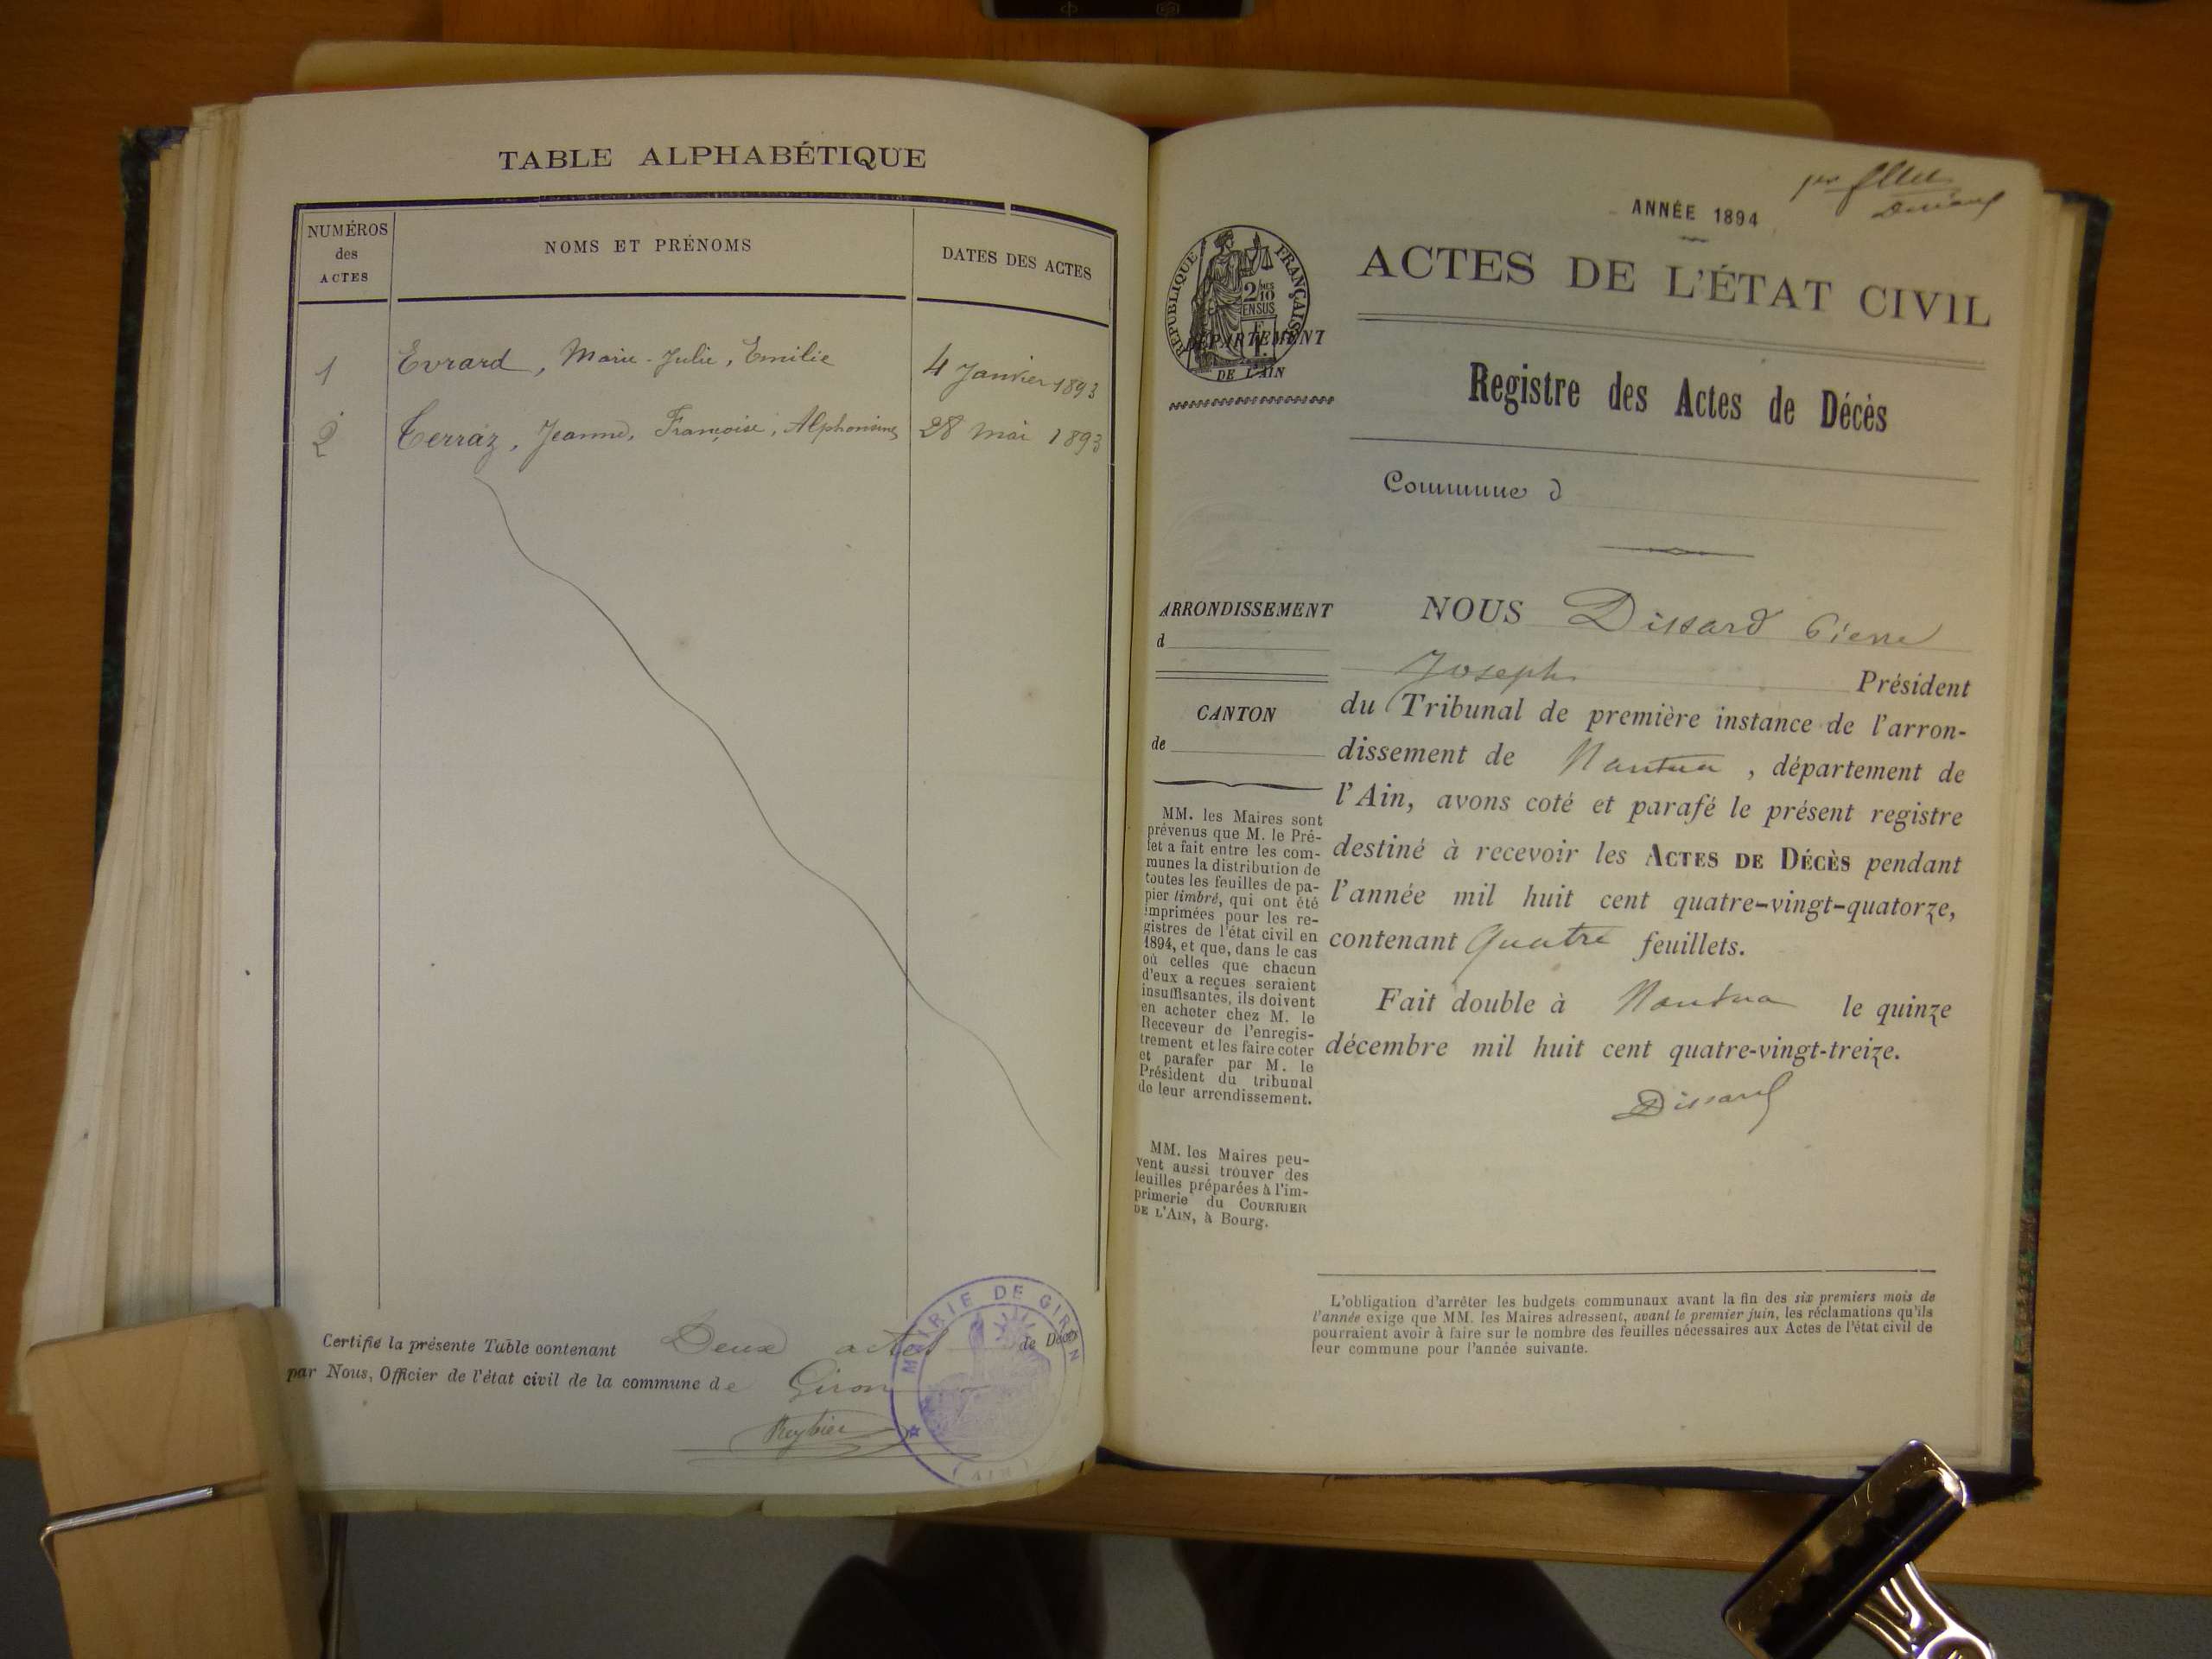 TABLE ALPHABÉTIQUE
NUMÉROS des ACTES
NOMS ET PRÉNOMS
DATES DES ACTES
1 Evrard, Marie-Julie, Emilie 4 Janvier 1893
2 Terraz, Jeanne, Françoise, Alphonsine 28 mai 1893
Certifié la présente Table contenant Deux actes de Décès
par Nous, Officier de l'état civil de la commune de Giron
Reybier
MAIRIE DE GIRON
(AIN)
ANNÉE 1894
RÉPUBLIQUE FRANÇAISE
2/10 MES
EN SUS
DÉPARTEMENT
DE L'AIN
ACTES DE L'ÉTAT CIVIL
Registre des Actes de Décès
Commune d
ARRONDISSEMENT
d
CANTON
de
MM. les Maires sont
prévenus que M. le Pré-
fet a fait entre les com-
munes la distribution de
toutes les feuilles de pa-
pier timbré, qui ont été
imprimées pour les re-
gistres de l'état civil en
1894, et que, dans le cas
où celles que chacun
d'eux a reçues seraient
insuffisantes, ils doivent
en acheter chez M. le
Receveur de l'enregis-
trement et les faire coter
et parafer par M. le
Président du tribunal
de leur arrondissement.
MM. les Maires peu-
vent aussi trouver des
feuilles préparées à l'im-
primerie du COURRIER
DE L'AIN, à Bourg.
NOUS Dissard Pierre
Joseph Président
du Tribunal de première instance de l'arron-
dissement de Nantua, département de
l'Ain, avons coté et parafé le présent registre
destiné à recevoir les ACTES DE DÉCÈS pendant
l'année mil huit cent quatre-vingt-quatorze,
contenant Quatre feuillets.
Fait double à Nantua le quinze
décembre mil huit cent quatre-vingt-treize.
Dissard
L'obligation d'arrêter les budgets communaux avant la fin des six premiers mois de
l'année exige que MM. les Maires adressent, avant le premier juin, les réclamations qu'ils
pourraient avoir à faire sur le nombre des feuilles nécessaires aux Actes de l'état civil de
leur commune pour l'année suivante.